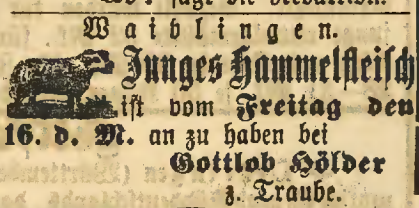 Waiblingen.
Junges Hammelfleisch
ist vom Freitag den
16. d. M. an zu haben bei
Gottlob Hölder
z. Traube.